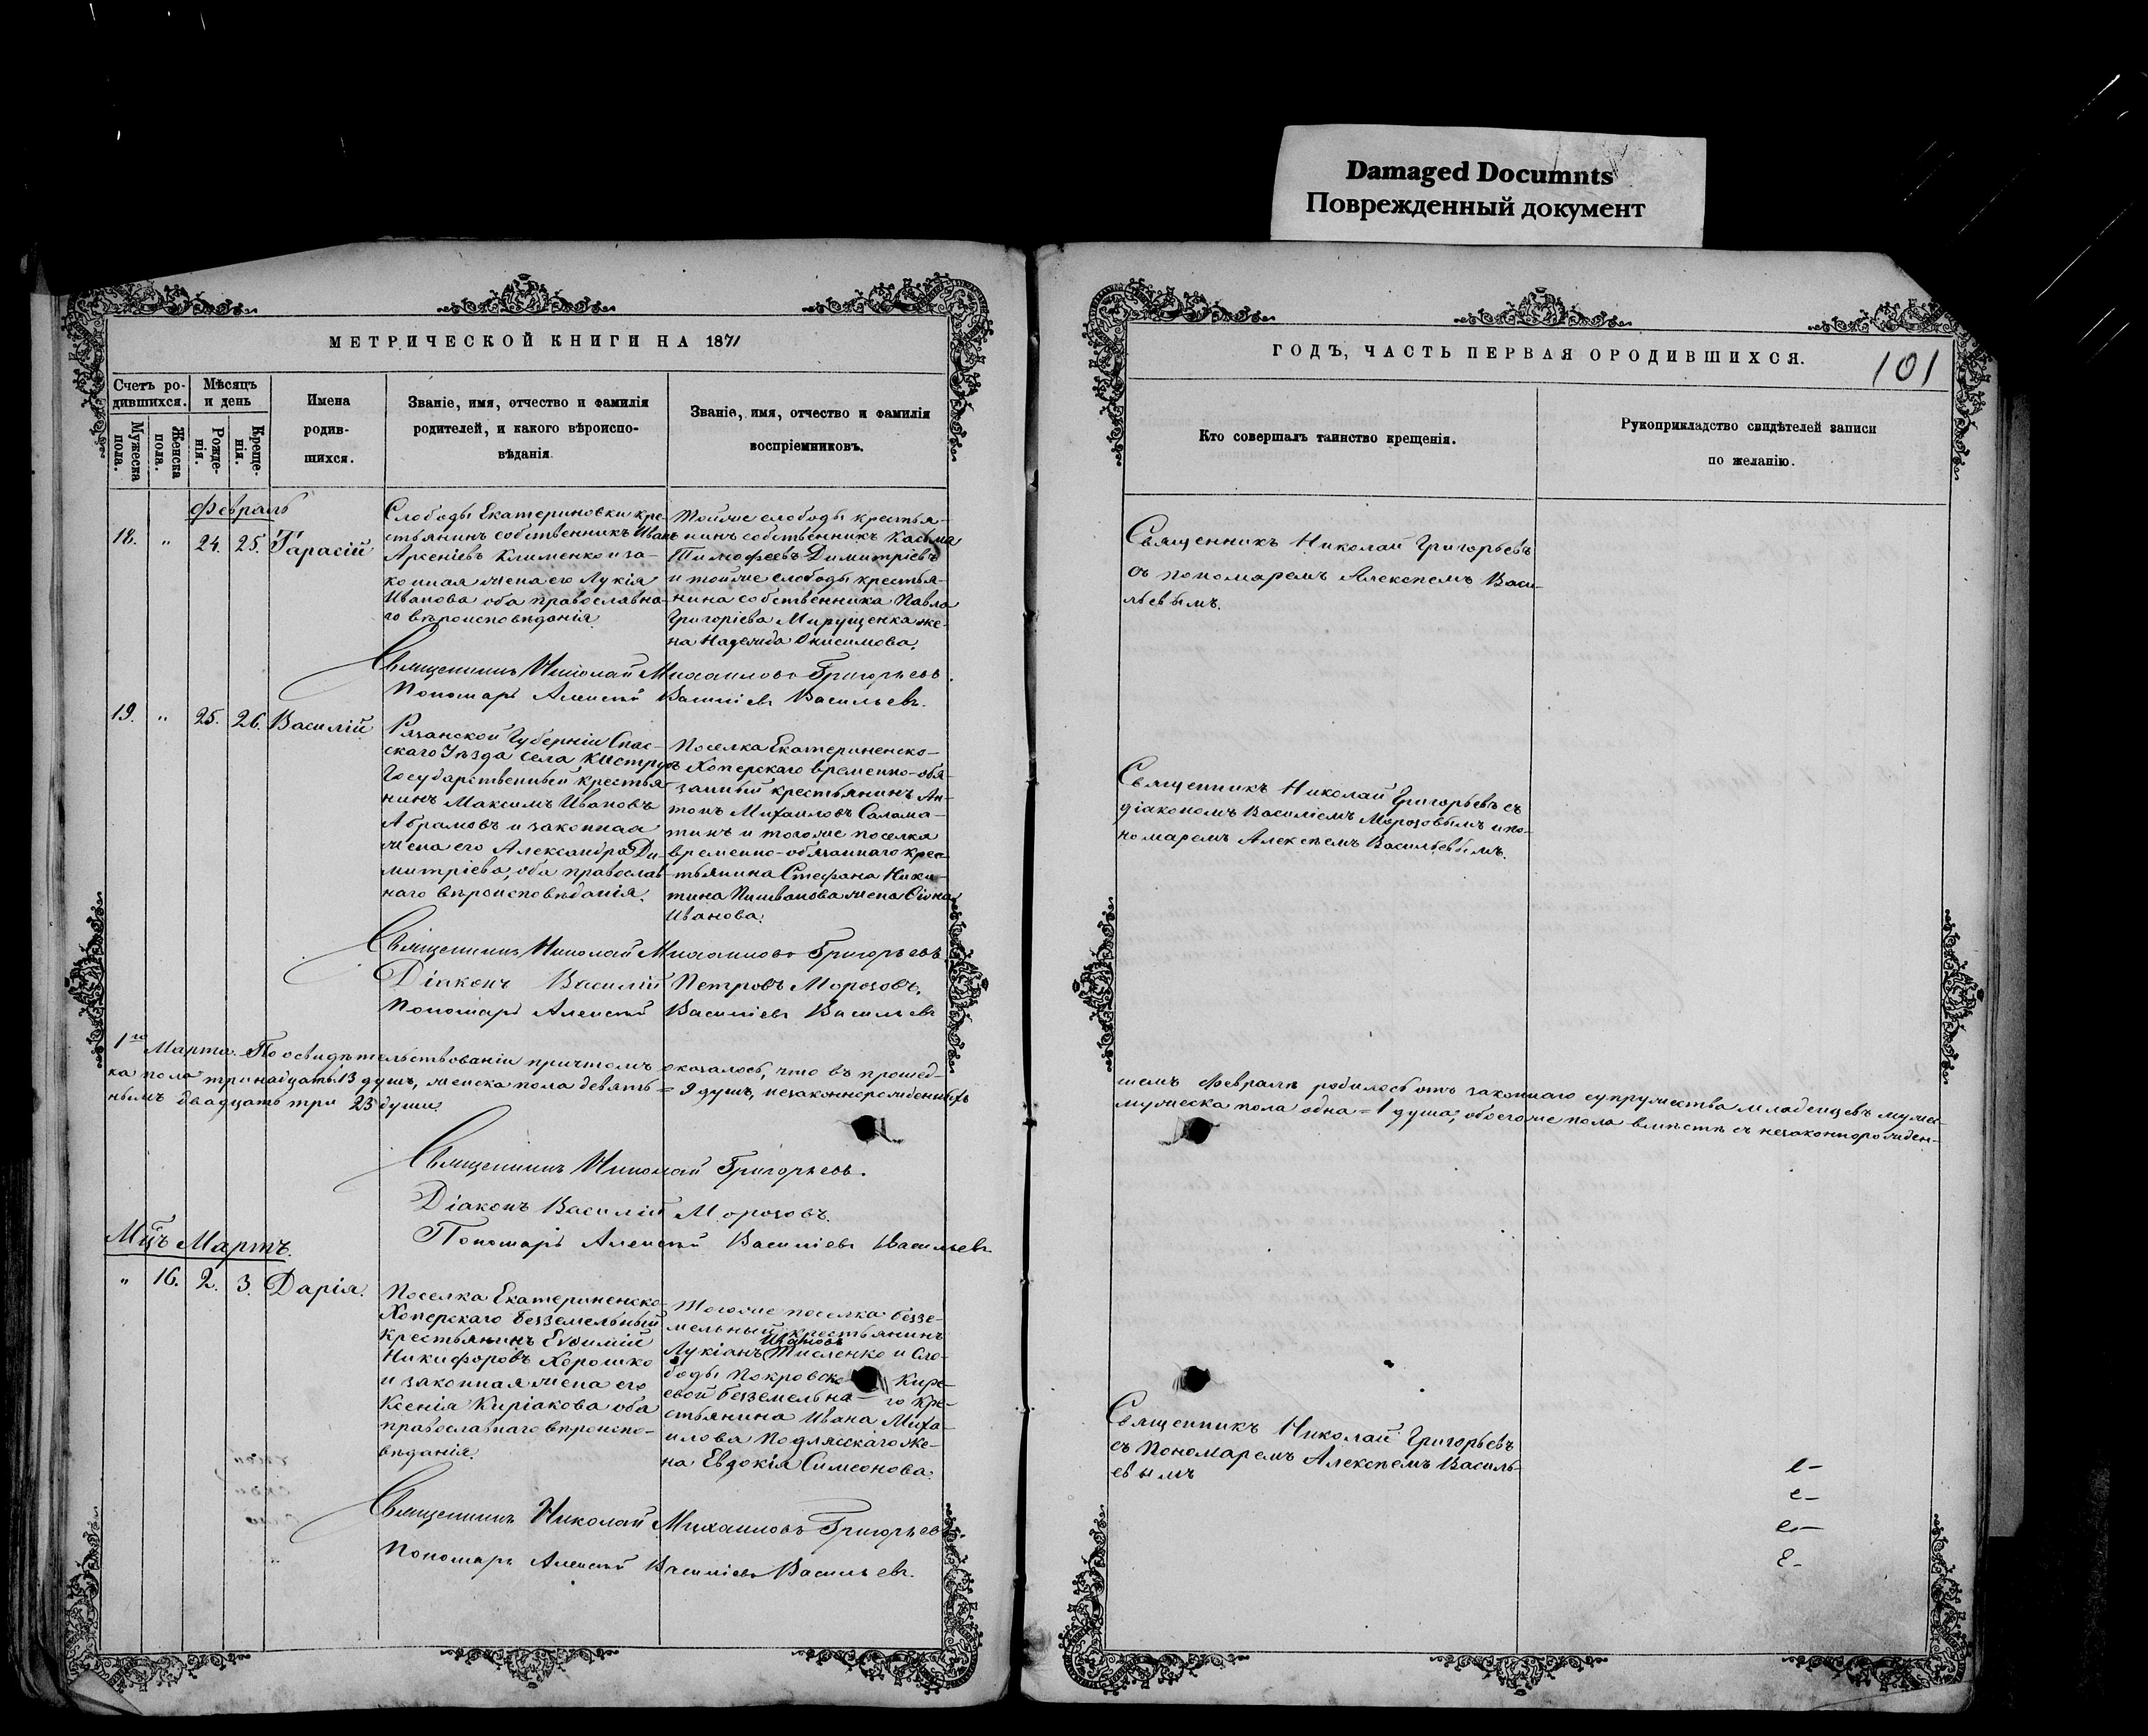 Damaged Documnts
Поврежденный документ
МЕТРИЧЕСКОЙ КНИГИ НА 1871
Счетъ ро-
дившихся.
Мѣсяцъ
и день
Мужеска пола.
Женска пола.
Рожде-
нія.
Креще-
нія.
Имена
родив-
шихся.
Званіе, имя, отчество и фамилія
родителей, и какого вѣроиспо-
вѣданія
Званіе, имя, отчество и фамилія
воспріемниковъ.
Февраль
18. " 24. 25. Тарасій
Слободы Екатериновки кре-
стьянинъ собственникъ Иванъ
Арсеніевъ Клименко и за-
конная жена его Лукія
Иванова оба православна-
го вѣроисповѣданія.
Тойже слободы крестья-
нинъ собственникъ Касьма
Тимофеевъ Димитріевъ
и тойже слободы крестья-
нина собственника Павла
Григоріева Мирущенка же-
на Надежда Онисимова.
Священникъ Николай Михаиловъ Григорьевъ.
Пономарь Алексѣй Василіевъ Васильевъ.
19. " 25. 26. Василій
Рязанской Губерніи Спас-
скаго Уѣзда села Кистру
Государственный крестья-
нинъ Максимъ Ивановъ
Абрамовъ и законная
жена его Александра Ди-
митріева, оба православ-
наго вѣроисповѣданія.
Поселка Екатериненско-
Хоперскаго временно-обя-
занный крестьянинъ Ан-
тонъ Михаиловъ Салама-
тинъ и тогоже поселка
временно-обязаннаго крес-
тьянина Стефана Ники-
тина жена
Иванова.
Священникъ Николай Михаиловъ Григорьевъ.
Діаконъ Василій Петровъ Морозовъ.
Пономарь Алексѣй Василіевъ Васильевъ
1го Марта. По освидѣтельствованіи причтомъ оказалось, что въ прошед-
ка пола тринадцать 13 душъ, женска пола девять = 9 душъ, незаконнорожденныхъ
нымъ двадцать три 23 души.
Священникъ Николай Григорьевъ.
Діаконъ Василій Морозовъ.
Пономарь Алексѣй Василіевъ Васильевъ
Мцъ Мартъ.
" 16. 2. 3. Дарія.
Поселка Екатериненско-
Хоперскаго безземельный
крестьянинъ Евѳимій
Никифоровъ Хорошко
и законная жена его
Ксенія Киріакова оба
православнаго вѣроиспо-
вѣданія.
Тогоже поселка беззе-
мельный крестьянинъ
Ивановъ
Лукіанъ Тисленко и Сло-
боды Покровско Кире-
евой безземельна- го кре-
стьянина Ивана Миха-
илова Подлясскаго же-
на Евдокія Симеонова.
Священникъ Николай Михаиловъ Григорьевъ.
Пономарь Алексѣй Василіевъ Васильевъ.
ГОДЪ, ЧАСТЬ ПЕРВАЯ О РОДИВШИХСЯ.
101
Кто совершалъ таинство крещенія.
Рукоприкладство свидѣтелей записи
по желанію.
Священникъ Николай Григорьевъ
съ пономаремъ Алексѣемъ Васи-
льевымъ.
Священникъ Николай Григорьевъ съ
діакономъ Василіемъ Морозовымъ и по-
номаремъ Алексѣемъ Васильевымъ.
шемъ Февралѣ родилось отъ законнаго супружества младенцевъ мужес-
мужеска пола одна = 1 душа, обоегоже пола вмѣстѣ съ незаконнорожден-
Священникъ Николай Григорьевъ
съ Пономаремъ Алексѣемъ Василь-
евымъ